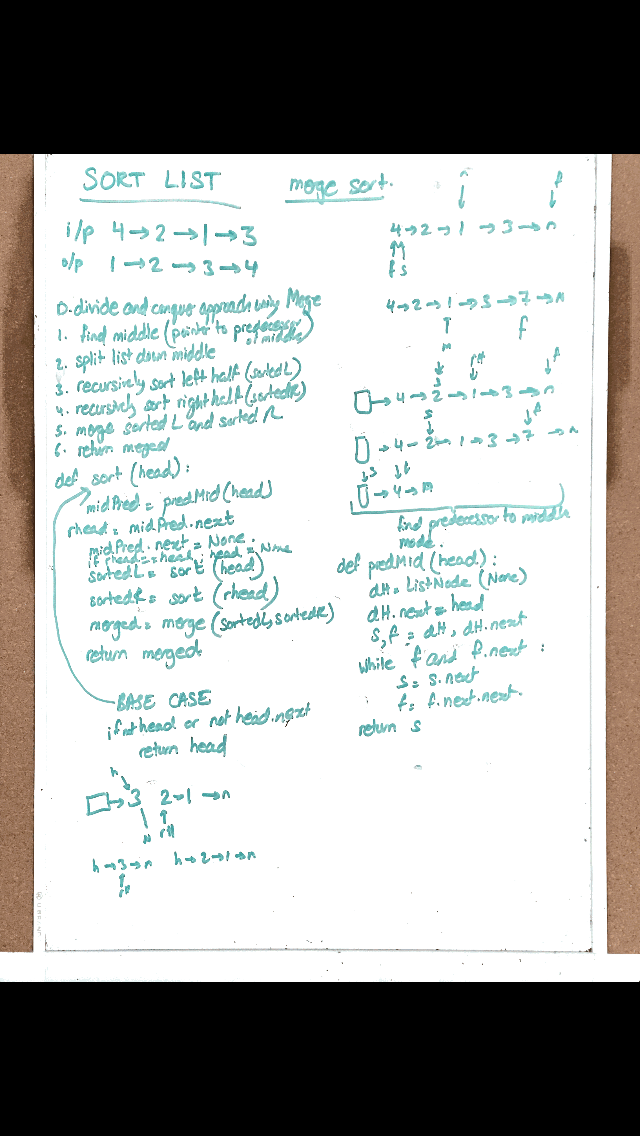 SORT LIST
merge sort.
i/p 4→2→1→3
o/p 1→2→3→4
0. divide and conquer approach using Merge
1. find middle (pointer to predecessor of middle)
2. split list down middle
3. recursively sort left half (sortedL)
4. recursively sort right half (sortedR)
5. merge sorted L and sorted R
6. return merged
def sort (head):
midPred = predMid(head)
rhead = midPred.next
midPred.next = None.
if rhead == head: head = None
sortedL = sort (head)
sortedR = sort (rhead)
merged = merge (sortedL, sortedR)
return merged
BASE CASE
if not head or not head.next
return head
h
□→3 2→1→n
rH
h→3→n h→2→1→n
f
4→2→1→3→n
f s
4→2→1→3→7→n
m f
s rH f
□→4→2→1→3→n
s f
□→4→2→1→3→7→n
s f
□→4→n
find predecessor to middle
node.
def predMid(head):
dH = ListNode(None)
dH.next = head
s,f = dH, dH.next
while f and f.next:
s = s.next
f = f.next.next.
return s